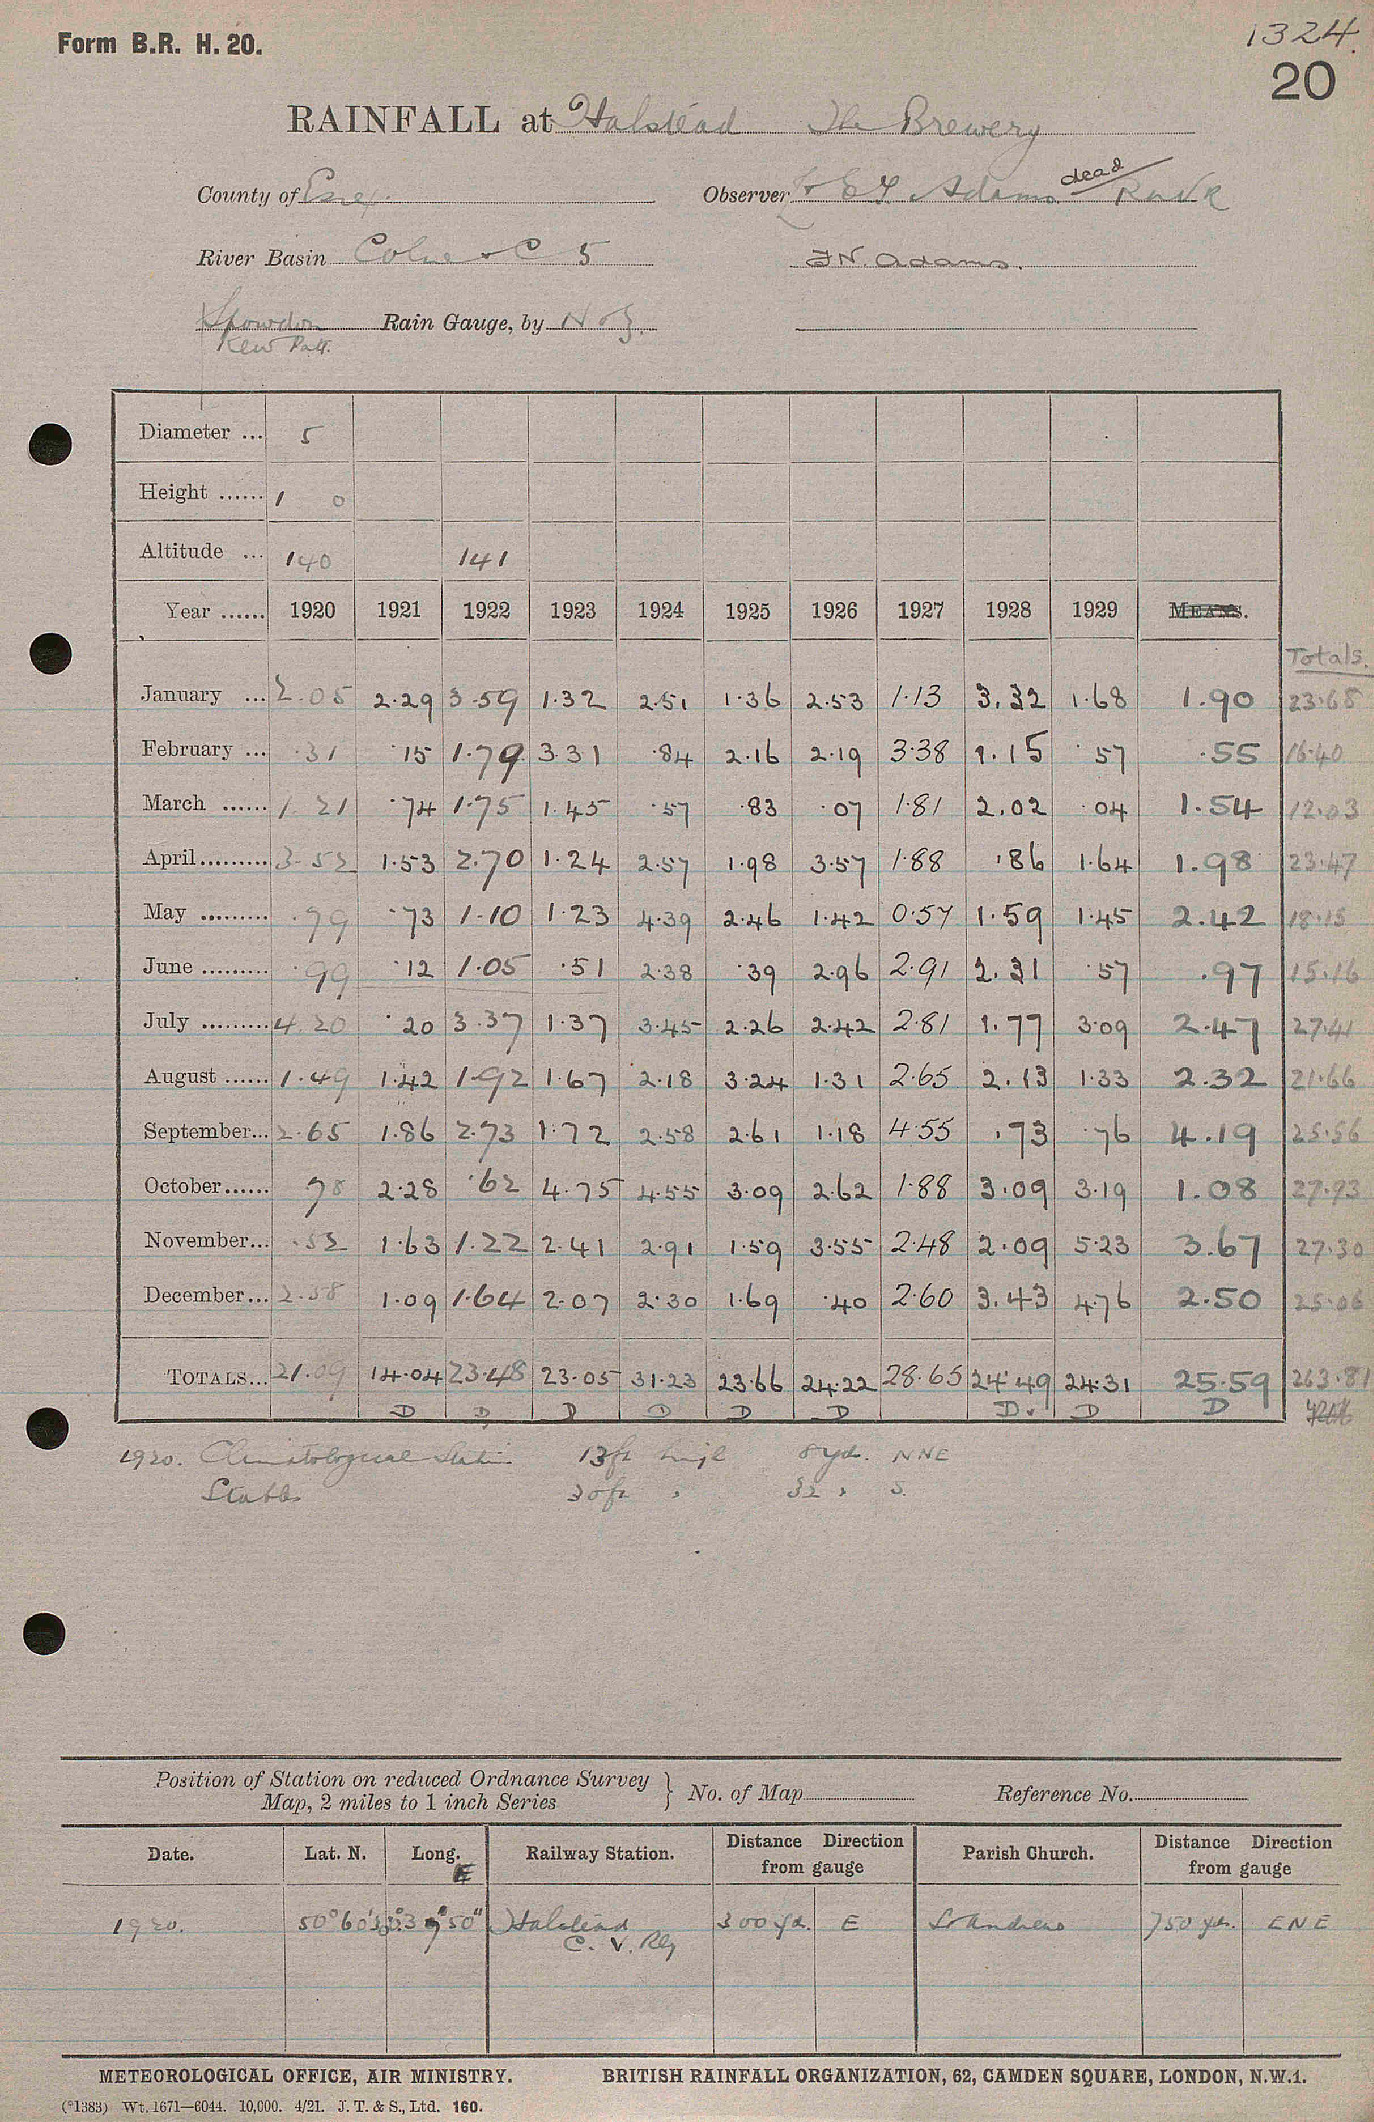 Form B.R. H. 20.
1324.
20
RAINFALL at Halstead The Brewery
County of Essex.
Observer E Adams dead
River Basin Colne & C 5
J N. Adams.
Snowdon Rain Gauge, by N & Z.
Kew Patt.
Diameter ... 5
Height ...... 1 0
Altitude ... 140 141
Year ...... 1920 1921 1922 1923 1924 1925 1926 1927 1928 1929 MEANS.
Totals.
January ... 2.05 2.29 3.59 1.32 2.51 1.36 2.53 1.13 3.32 1.68 1.90 23.68
February ... .31 .15 1.79 3.31 .84 2.16 2.19 3.38 1.15 .57 .55 16.40
March ...... 1.21 .74 1.75 1.45 .57 .83 .07 1.81 2.02 .04 1.54 12.03
April ......... 3.52 1.53 2.70 1.24 2.57 1.98 3.57 1.88 .86 1.64 1.98 23.47
May ......... .79 .73 1.10 1.23 4.39 2.46 1.42 0.57 1.59 1.45 2.42 18.15
June ......... .99 .12 1.05 .51 2.38 .39 2.96 2.91 2.31 .57 .97 15.16
July ......... 4.20 .20 3.37 1.37 3.45 2.26 2.42 2.81 1.77 3.09 2.47 27.41
August ...... 1.49 1.42 1.92 1.67 2.18 3.24 1.31 2.65 2.13 1.33 2.32 21.66
September... 2.65 1.86 2.73 1.72 2.58 2.61 1.18 4.55 .73 .76 4.19 25.56
October...... .78 2.28 .62 4.75 4.55 3.09 2.62 1.88 3.09 3.19 1.08 27.93
November... .52 1.63 1.22 2.41 2.91 1.59 3.55 2.48 2.09 5.23 3.67 27.30
December... 2.58 1.09 1.64 2.07 2.30 1.69 .40 2.60 3.43 4.76 2.50 25.06
TOTALS... 21.09 14.04 23.48 23.05 31.23 23.66 24.22 28.65 24.49 24.31 25.59 263.81
D D D D D D D. D D
1920. Climatological Station 13ft high 8 yd. NNE
30ft " 32 " S.
Position of Station on reduced Ordnance Survey Map, 2 miles to 1 inch Series } No. of Map Reference No.
Date. Lat. N. Long. E Railway Station. Distance Direction from gauge Parish Church. Distance Direction from gauge
1920. Halstead C. V. Rly 300 yd. E St Andrews 750 yds. ENE
METEOROLOGICAL OFFICE, AIR MINISTRY. BRITISH RAINFALL ORGANIZATION, 62, CAMDEN SQUARE, LONDON, N.W.1.
(*1383) Wt. 1671—6044. 10,000. 4/21. J. T. & S., Ltd. 160.